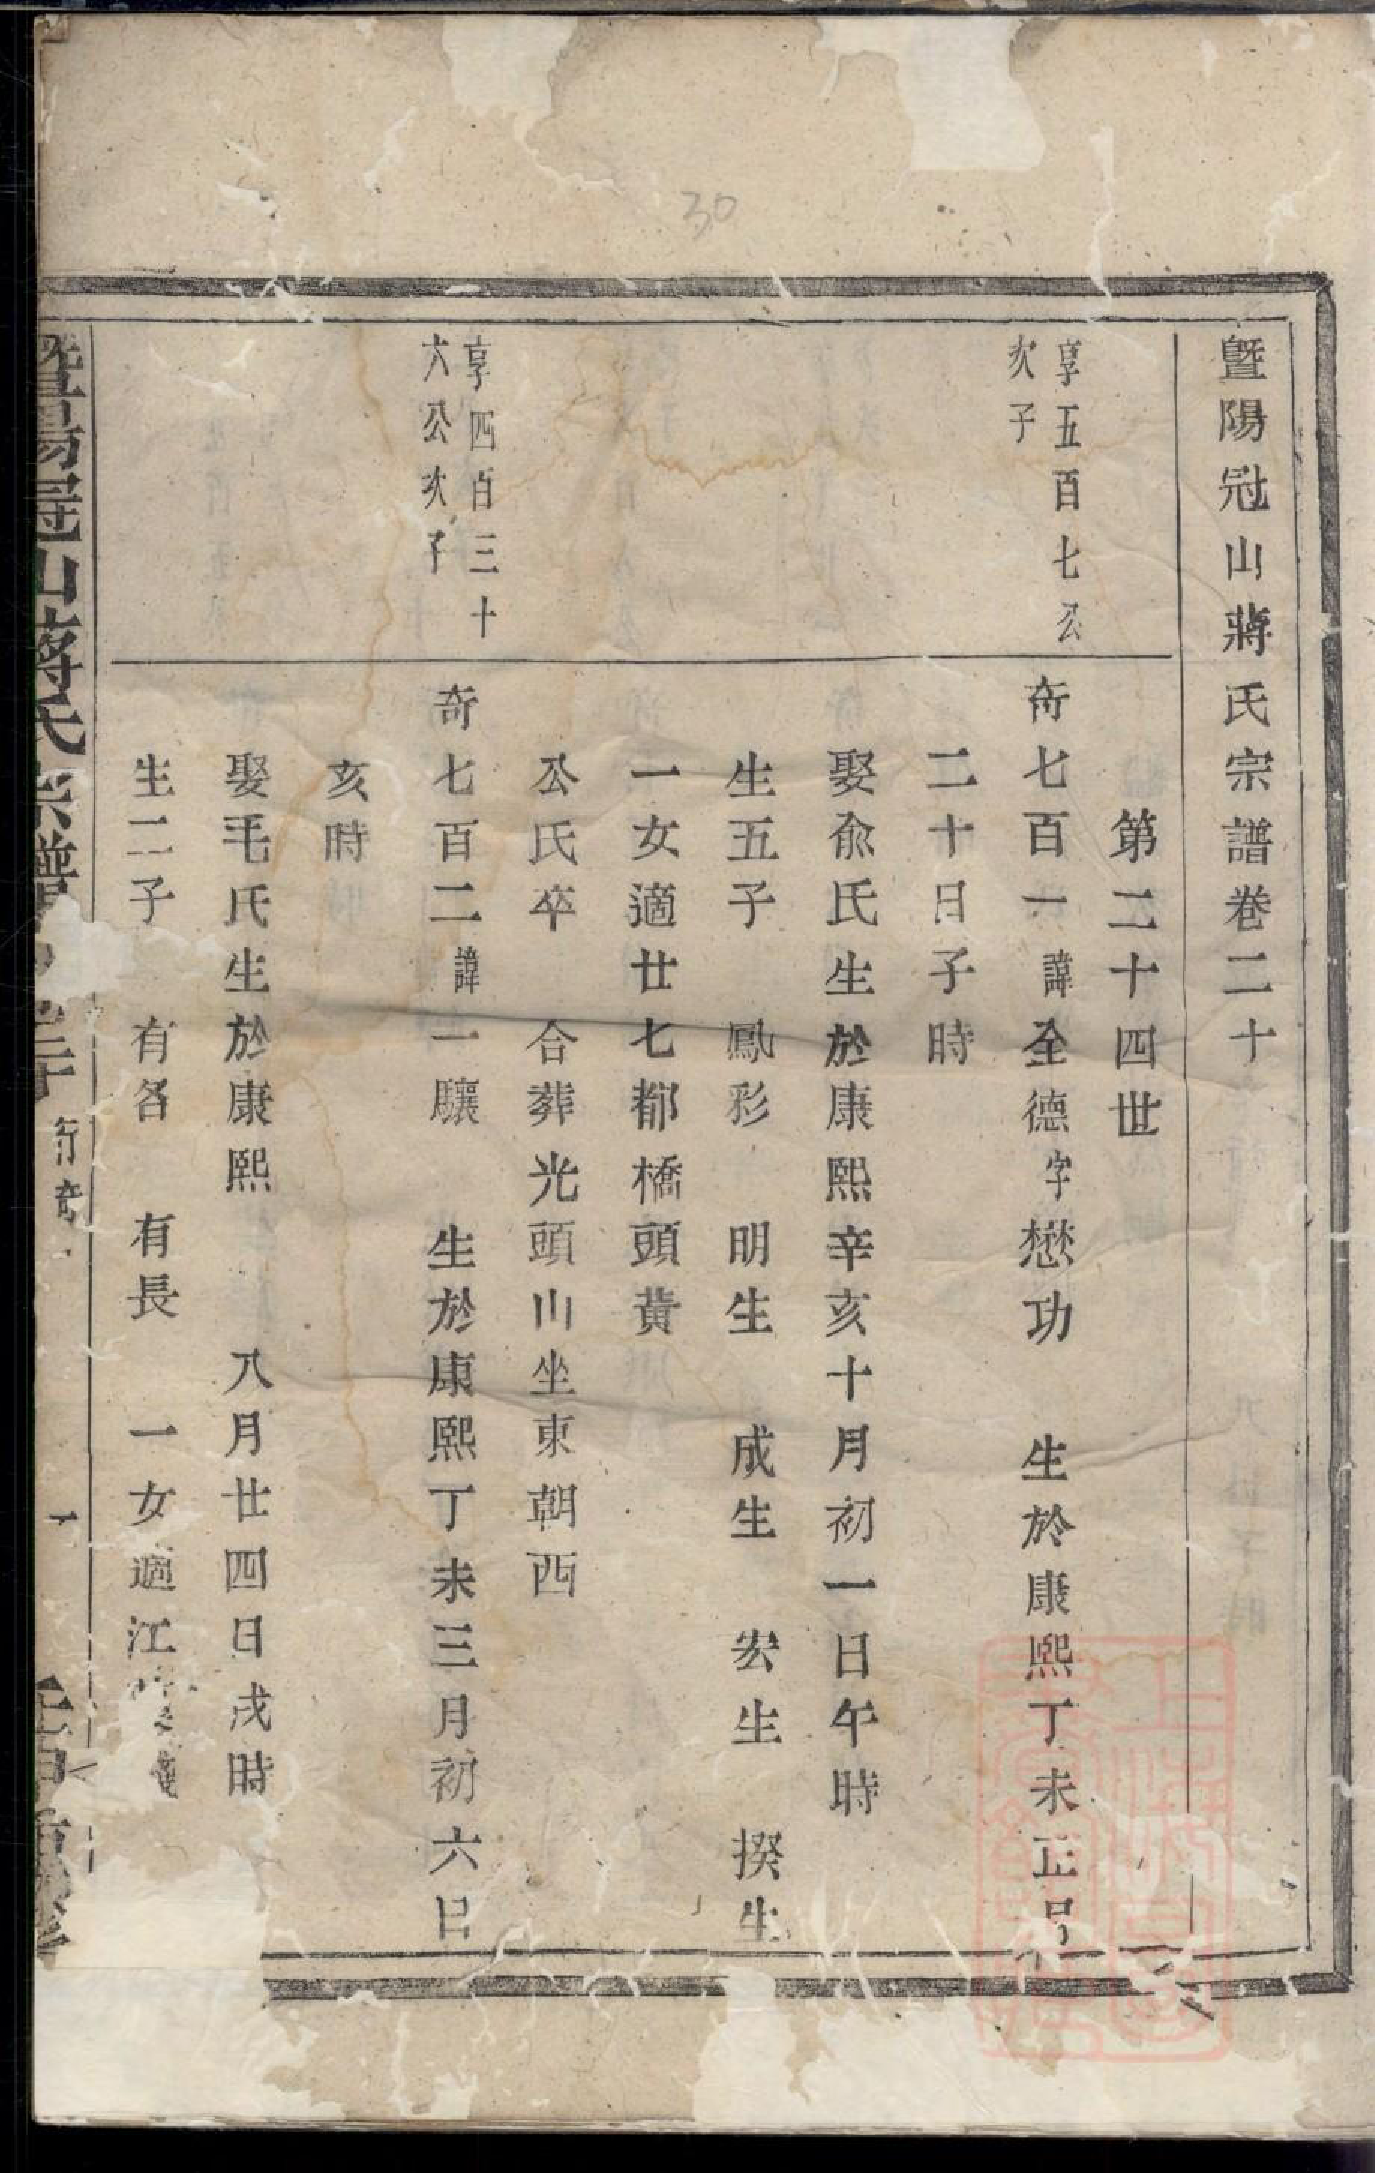 30
暨陽冠山蔣氏宗譜卷二十
第二十四世
享五百七公
次子
奇七百一諱全德字懋功 生於康熙丁未正月
二十日子時
娶兪氏生於康熙辛亥十月初一日午時
生五子 鳳彩 明生 成生 宏生 揆生
一女適廿七都橋頭黄
公氏卒 合葬光頭山坐東朝西
享四百三十
六公次子
奇七百二諱一驤 生於康熙丁未三月初六日
亥時
娶毛氏生於康熙 八月廿四日戌時
生二子 有各 有長 一女適江
暨陽冠山蔣氏宗譜 卷二十 行奇 一
重修